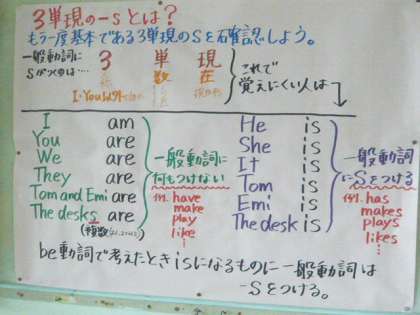 3単現の-sとは？
もう一度基本である3単現のSを確認しよう。
一般動詞に
Sがつくのは…
3 単 現
数 在
I・You以外
これで
覚えにくい人は
I am
You are
We are
They are
Tom and Emi are
The desks are
(複数
一般動詞に
何もつけない
例. have
make
play
like …
He is
She is
It is
Tom is
Emi is
The desk is
一般動詞
に-Sをつける
例. has
makes
plays
likes …
be動詞で考えたときisになるものに一般動詞は
-Sをつける。